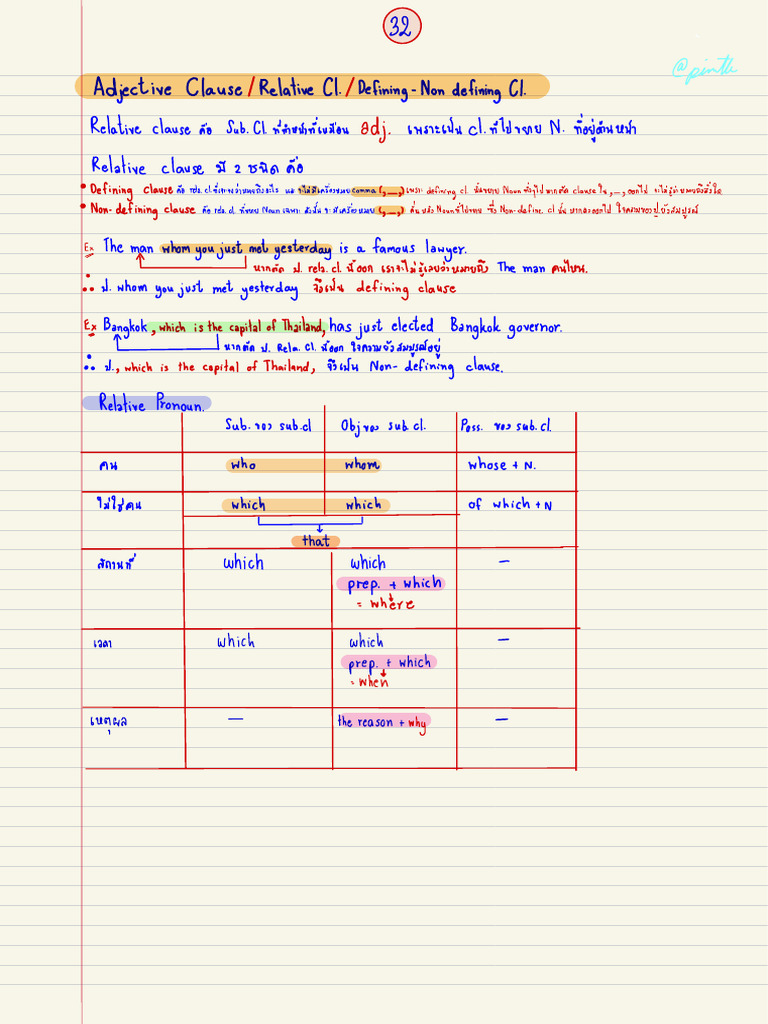 32
@pinth
Adjective Clause / Relative Cl. / Defining - Non defining Cl.
Relative clause คือ Sub. Cl. ที่ทำหน้าที่เหมือน adj. เพราะเป็น cl. ที่ไปขยาย N. ที่อยู่ด้านหน้า
Relative clause มี 2 ชนิด คือ
• Defining clause คือ rela. cl. ที่ และ จะไม่มีเครื่องหมาย comma (,__,) เพราะ defining cl. Noun ทั่วไป หากตัด clause ใน ,__, ออกไป จะไม่รู้ว่าหมายถึงสิ่งใด
• Non-defining clause คือ rela. cl. ที่ขยาย Noun เฉพาะ ดังนั้น จะมีเครื่องหมาย (,__,) คั่น หลัง Noun ที่ไปขยาย ซึ่ง Non-define. cl นั้น หากลองออกไป ใจความของรูปยังสมบูรณ์
Ex The man whom you just met yesterday is a famous lawyer.
หากตัด ป. rela. cl. นี้ออก เราจะไม่รู้เลยว่าหมายถึง The man คนไหน.
∴ ป. whom you just met yesterday จึงเป็น defining clause
Ex Bangkok, which is the capital of Thailand, has just elected Bangkok governor.
หากตัด ป. Rela. Cl. นี้ออก ใจความยังสมบูรณ์อยู่
∴ ป., which is the capital of Thailand, จึงเป็น Non- defining clause.
Relative Pronoun.
Sub. ของ sub.cl Obj ของ sub. cl. Poss. ของ sub. cl.
คน who whom whose + N.
ไม่ใช่คน which which of which + N
that
สถานที่ which which —
prep. + which
= where
เวลา which which —
prep. + which
= when
เหตุผล — the reason + why —